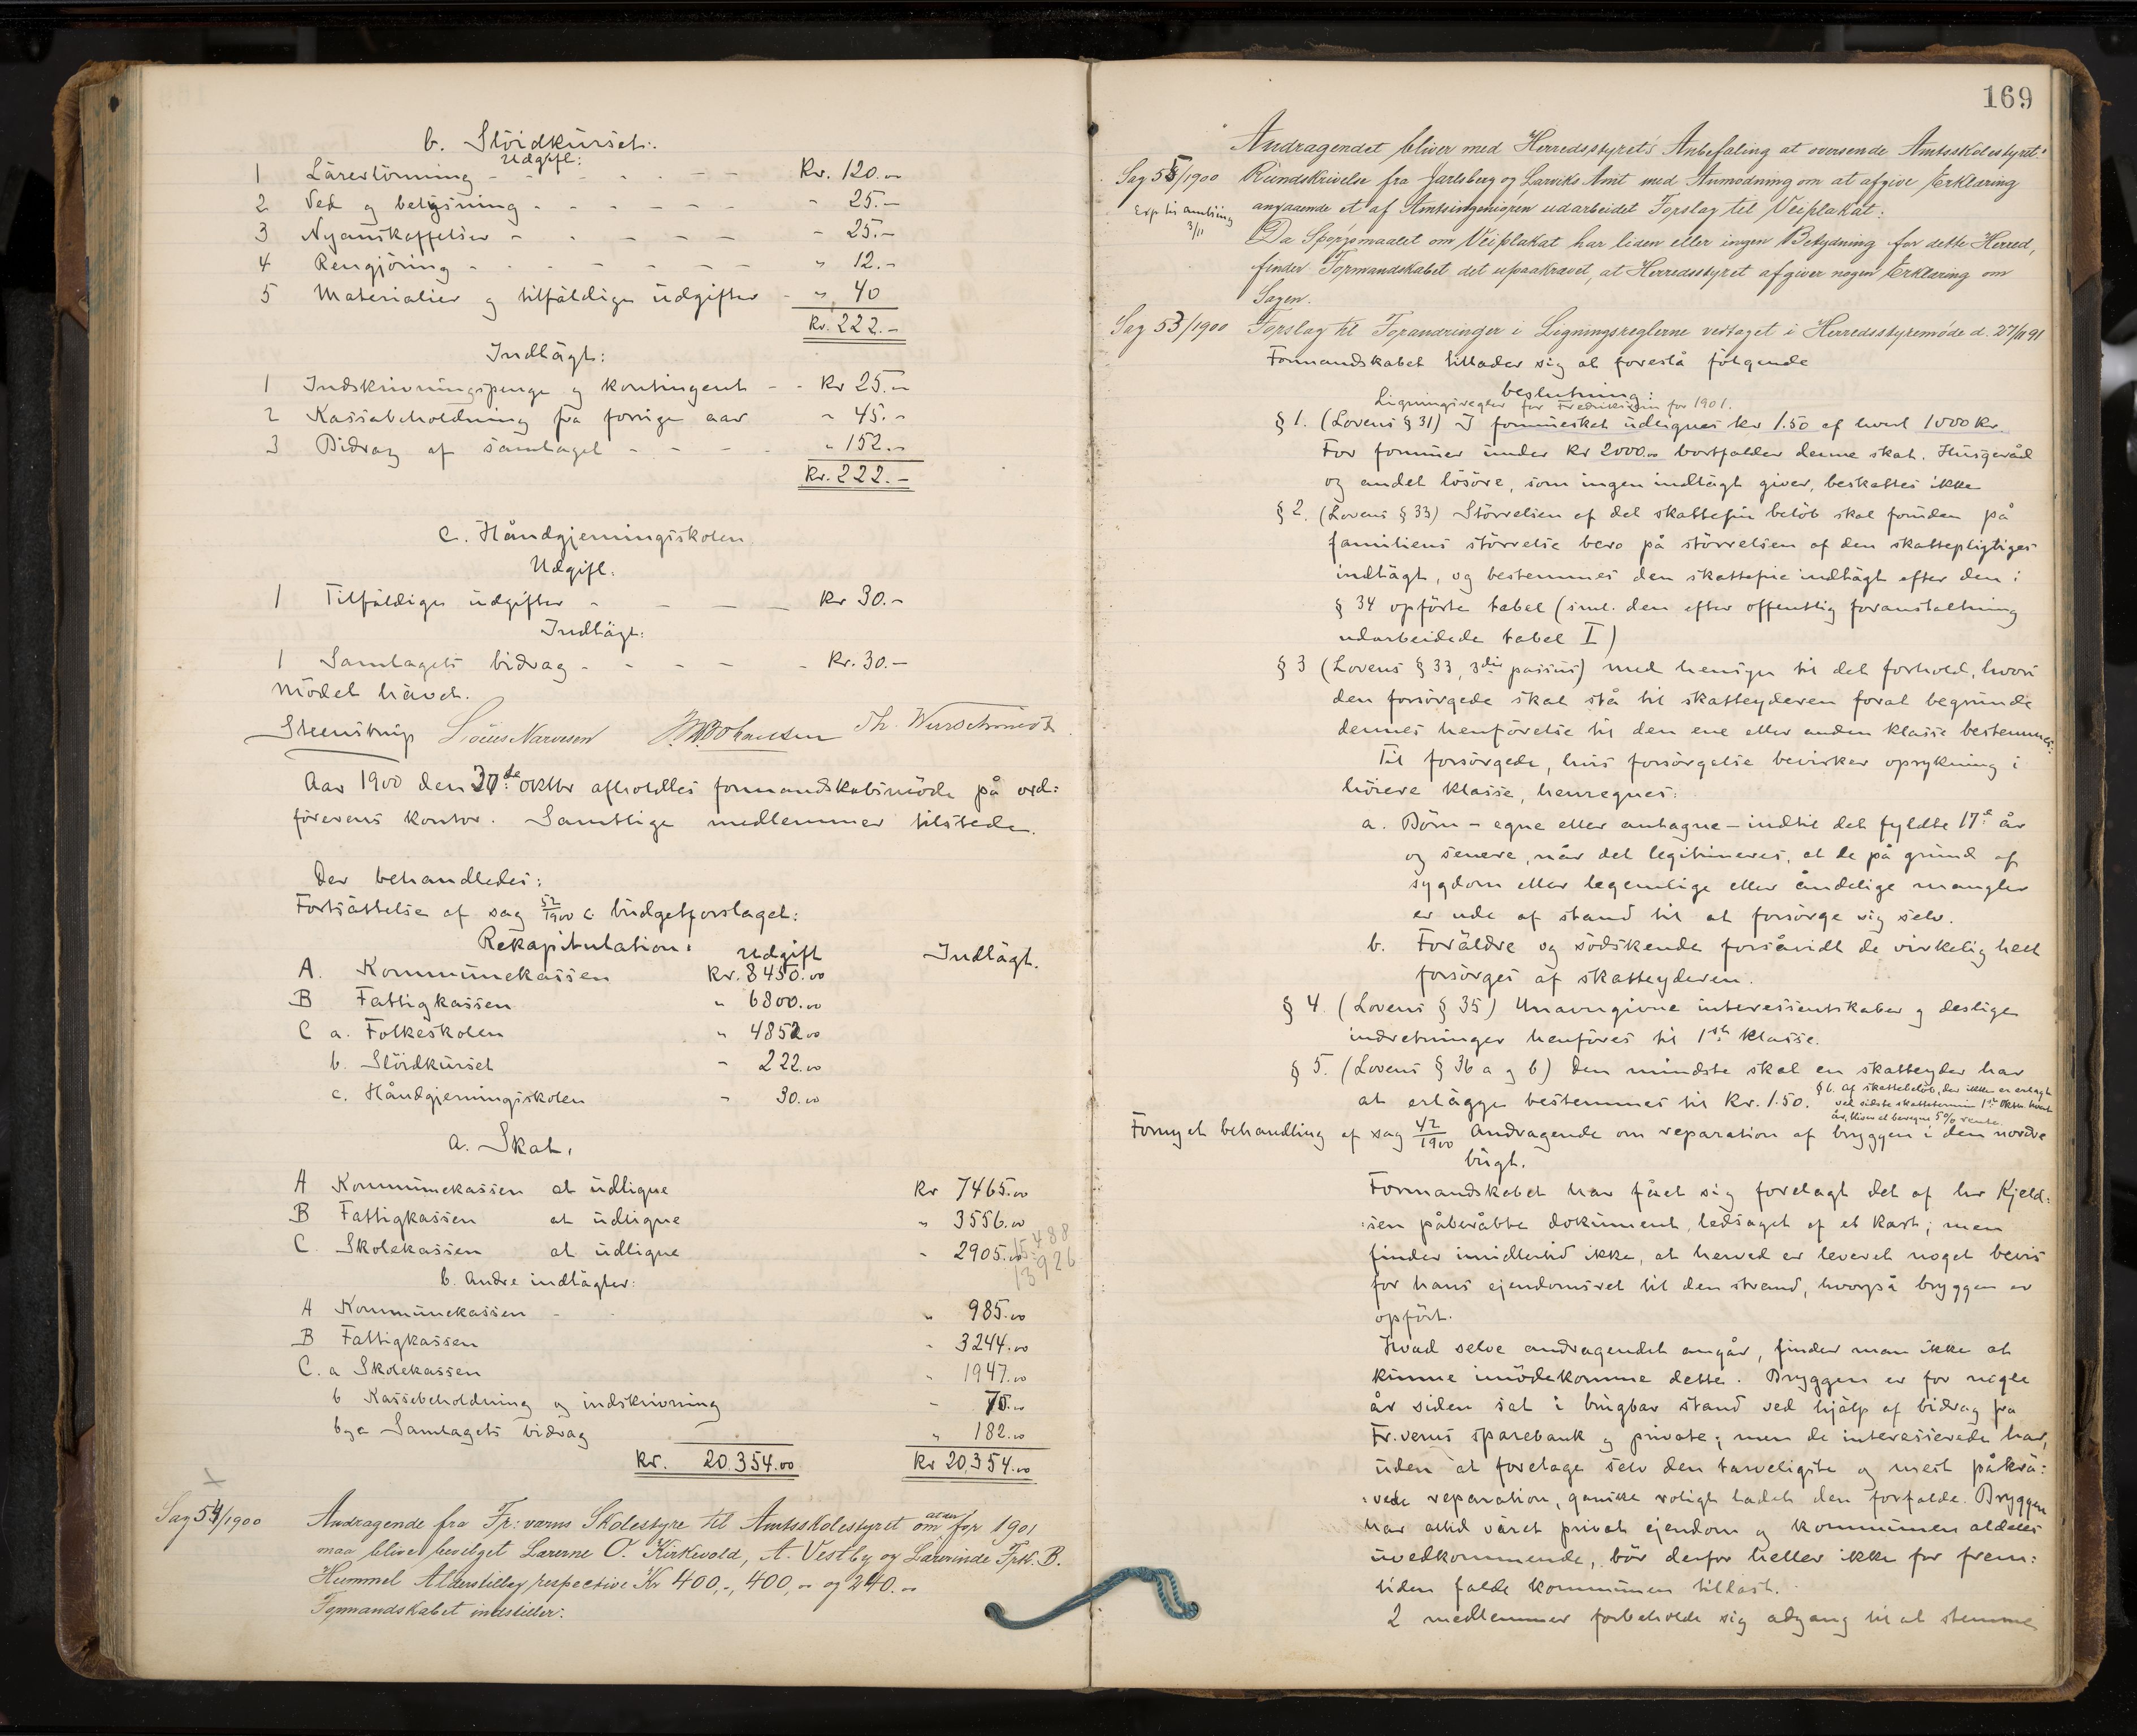 b. Slöidkurset:
Udgift:
1 Lärerlönning - - - - - - Kr. 120.00
2 Ved og belysning - - - - - - " 25.-
3 Nyanskaffelser - - - - - - " 25.-
4 Rengjöring - - - - - - " 12.-
5 Materialier og tilfäldige udgifter - " 40
Kr. 222.-
Indtägt:
1 Indskrivningspenge og kontingent - - Kr 25.-
2 Kassabeholdning fra forrige aar " 45.-
3 Bidrag af samlaget - - - - " 152.-
Kr. 222.-
C. Håndgjerningsskolen
Udgift.
1 Tilfäldige udgifter - - - - Kr 30.-
Indtägt:
1 Samlagets bidrag - - - - - Kr. 30.-
Mödet hävet.
Steenstrup Louis Narvesen Johansen Th. Wurschmidt
Aar 1900 den 30de oktbr afholdtes formandskabsmöde på ord:
förerens kontor. Samtlige medlemmer tilstede.
Der behandledes:
Fortsättelse af sag 52/1900 c. budgetforslaget:
Rekapitulation: Udgift Indtägt.
A. Kommunekassen Kr. 8450.00
B Fattigkassen " 6800.00
C a. Folkeskolen " 4852.00
b. Slöidkurset " 222.00
c. Håndgjerningsskolen " 30.00
a. Skat.
A Kommunekassen at udligne Kr 7465.00
B Fattigkassen at udligne " 3556.00
C. Skolekassen at udligne " 2905.00
15488
13926
b. Andre indtägter:
A Kommunekassen - " 985.00
B Fattigkassen " 3244.00
C. a Skolekassen " 1947.00
b Kassebeholdning og indskrivning " 70.00
b g c Samlagets bidrag " 182.00
Kr. 20.354.00 Kr 20,354.00
Sag 54/1900 Andragende fra Fr: værns Skolestyre til Amtsskolestyret om for 1901
maa blive bevilget Lærerne O. Kirkevold, A. Vestby og Lærerinde Frk. B.
Hummel Alderstillæg respective Kr 400,-, 400,00 og 240.00
Formandskabet indstiller:
169
Andragendet bliver med Herredsstyrets Anbefaling at oversende Amtsskolestyret.
Sag 55/1900 Rundskrivelse fra Jarlsberg og Larviks Amt med Anmodning om at afgive Erklæring
Exp. til amtsing 3/11
angaaende et af Amtsingeniøren udarbeidet Forslag til Veiplakat:
Da Spørgsmaalet om Veiplakat har liden eller ingen Betydning for dette Herred,
finder Formandskabet det upaakrævet, at Herredsstyret afgiver nogen Erklæring om
Sagen.
Sag 53/1900 Forslag til Forandringer i Ligningsreglerne vedtaget i Herredsstyremøde d. 27/11 91
Formandskabet tillader sig at foreslå fölgende
beslutning:
Ligningsregler for Fredriksværn for 1901.
§ 1. (Lovens § 31) I formueskat udlignes kr 1.50 af hvert 1000 Kr.
For formuer under Kr 2000.00 bortfalder denne skat. Husgeråd
og andet lösöre, som ingen indtägt giver, beskattes ikke
§ 2. (Lovens § 33) Störrelsen af det skattefrie belöb skal foruden på
familiens störrelse bero på störrelsen af den skattepligtiges
indtägt, og bestemmes den skattefrie indtägt efter den i
§ 34 opförte tabel (sml. den efter offentlig foranstaltning
udarbeidede tabel I)
§ 3 (Lovens § 33, 3die passus) med hensyn til det forhold, hvori
den forsörgede skal stå til skatteyderen forat begrunde
dennes henförelse til den ene eller anden klasse bestemmes:
Til forsörgede, hvis forsörgelse bevirker oprykning i
höiere klasse, henregnes:
a. Börn - egne eller antagne - indtil det fyldte 17de år
og senere, når det legitimeres, at de på grund af
sygdom eller legemlige eller åndelige mangler
er ude af stand til at forsörge sig selv.
b. Foräldre og södskende forsåvidt de virkelig helt
forsörges af skatteyderen.
§ 4. (Lovens § 35) Unavngivne interessentskaber og deslige
indretninger henföres til 1ste klasse.
§ 5. (Lovens § 36 a og b) Den mindste skat en skatteyder har
at erlägge bestemmes til Kr. 1.50.
§ 6. Af skattebelöb, der ikke er erlagt
ved sidste skattetermin 1ste Oktbr. hvert
år, bliver at beregne 5% rente.
Fornyet behandling af sag 42/1900 Andragende om reparation af bryggen i den nordre
bugt.
Formandskabet har fået sig forelagt det af hr Kjeld:
:sen påberåbte dokument, ledsaget af et kart; men
finder imidlertid ikke, at herved er leveret noget bevis
for hans ejendomsret til den strand, hvorpå bryggen er
opfört.
Hvad selve andragendet angår, finder man ikke at
kunne imödekomme dette. Bryggen er for nogle
år siden sat i brugbar stand ved hjälp af bidrag fra
Fr. verns sparebank og private; men de interesserede har,
uden at foretage selv den tarveligste og mest påkrä:
:vede reparation, ganske roligt ladet den forfalde. Bryggen
har altid väret privat ejendom og kommunen aldeles
uvedkommende, bör derfor heller ikke for frem:
tiden falde kommunen tillast.
2 medlemmer forbeholde sig adgang til at stemme